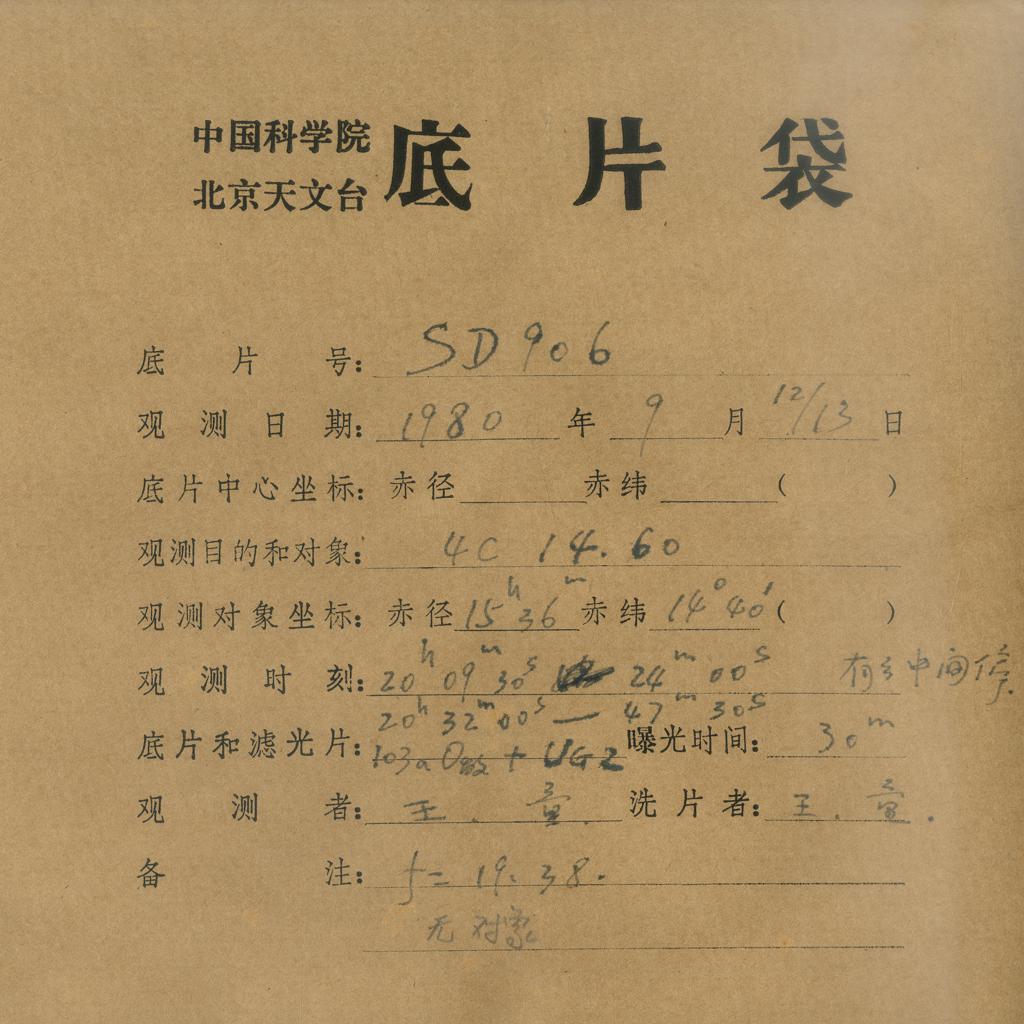 中国科学院
北京天文台
底片袋
底片号: SD906
观测日期: 1980年9月12/13日
底片中心坐标: 赤径 赤纬 ( )
观测目的和对象: 4C 14.60
观测对象坐标: 赤径 15h 36m 赤纬 14° 40′ ( )
观测时刻: 20h 09m 30s — 24m 00s 中间停
20h 32m 00s — 47m 30s
底片和滤光片: 103aO敏 + UG2 曝光时间: 30m
观测者: 王. 洗片者: 王.
备注: f = 19.38.
无对象